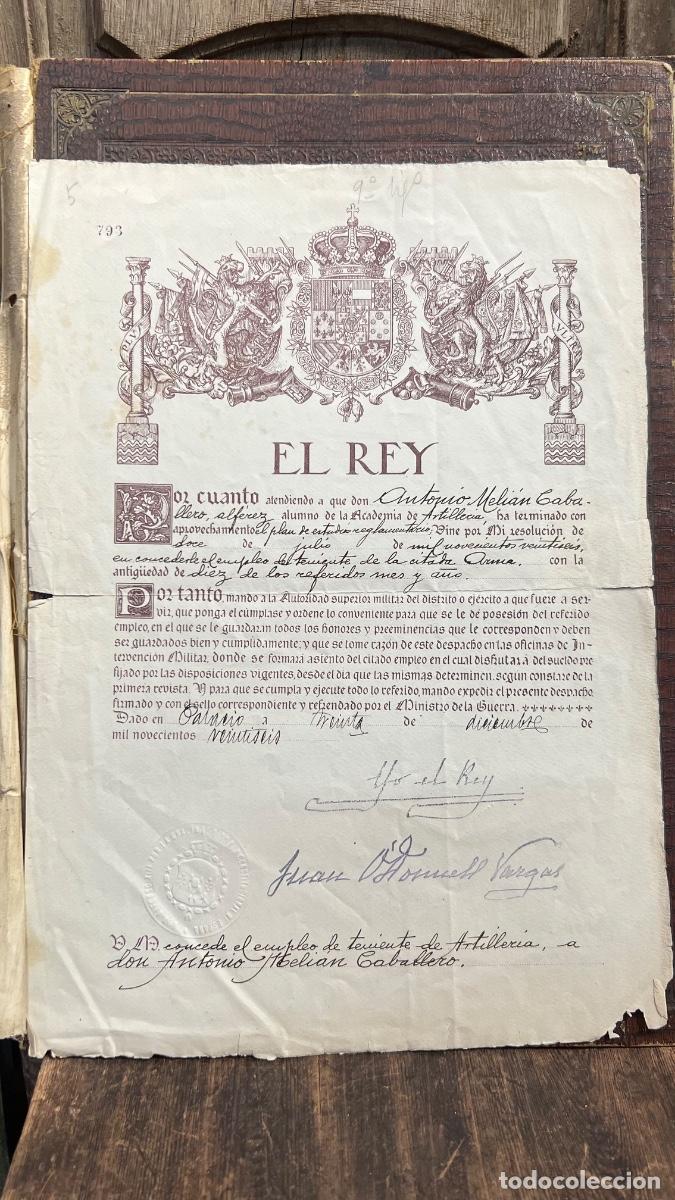 5
793
EL REY
Por cuanto atendiendo a que don Antonio Melián Caba-
llero, alférez alumno de la Academia de Artillería, ha terminado con
aprovechamiento el plan de estudios reglamentario, Vine por Mi resolución de
doce de julio de mil novecientos veintiseis,
en concederle el empleo de teniente, de la citada Arma. con la
antigüedad de diez de los referidos mes y año.
Por tanto mando a la Autoridad superior militar del distrito o ejército a que fuere a ser-
vir, que ponga el cúmplase y ordene lo conveniente para que se le dé posesión del referido
empleo, en el que se le guardaran todos los honores y preeminencias que le corresponden y deben
ser guardados bien y cumplidamente; y que se tome razón de este despacho en las oficinas de In-
tervención Militar, donde se formará asiento del citado empleo en el cual disfrutará del sueldo pre-
fijado por las disposiciones vigentes, desde el día que las mismas determinen, según constare de la
primera revista. Y para que se cumpla y ejecute todo lo referido, mando expedir el presente despacho
firmado y con el sello correspondiente y refrendado por el Ministro de la Guerra.
Dado en Palacio a treinta de diciembre de
mil novecientos veintiseis
Yo el Rey
Juan O'Donnell Vargas
V. M. concede el empleo de teniente de Artillería, a
don Antonio Melian Caballero.
todocoleccion